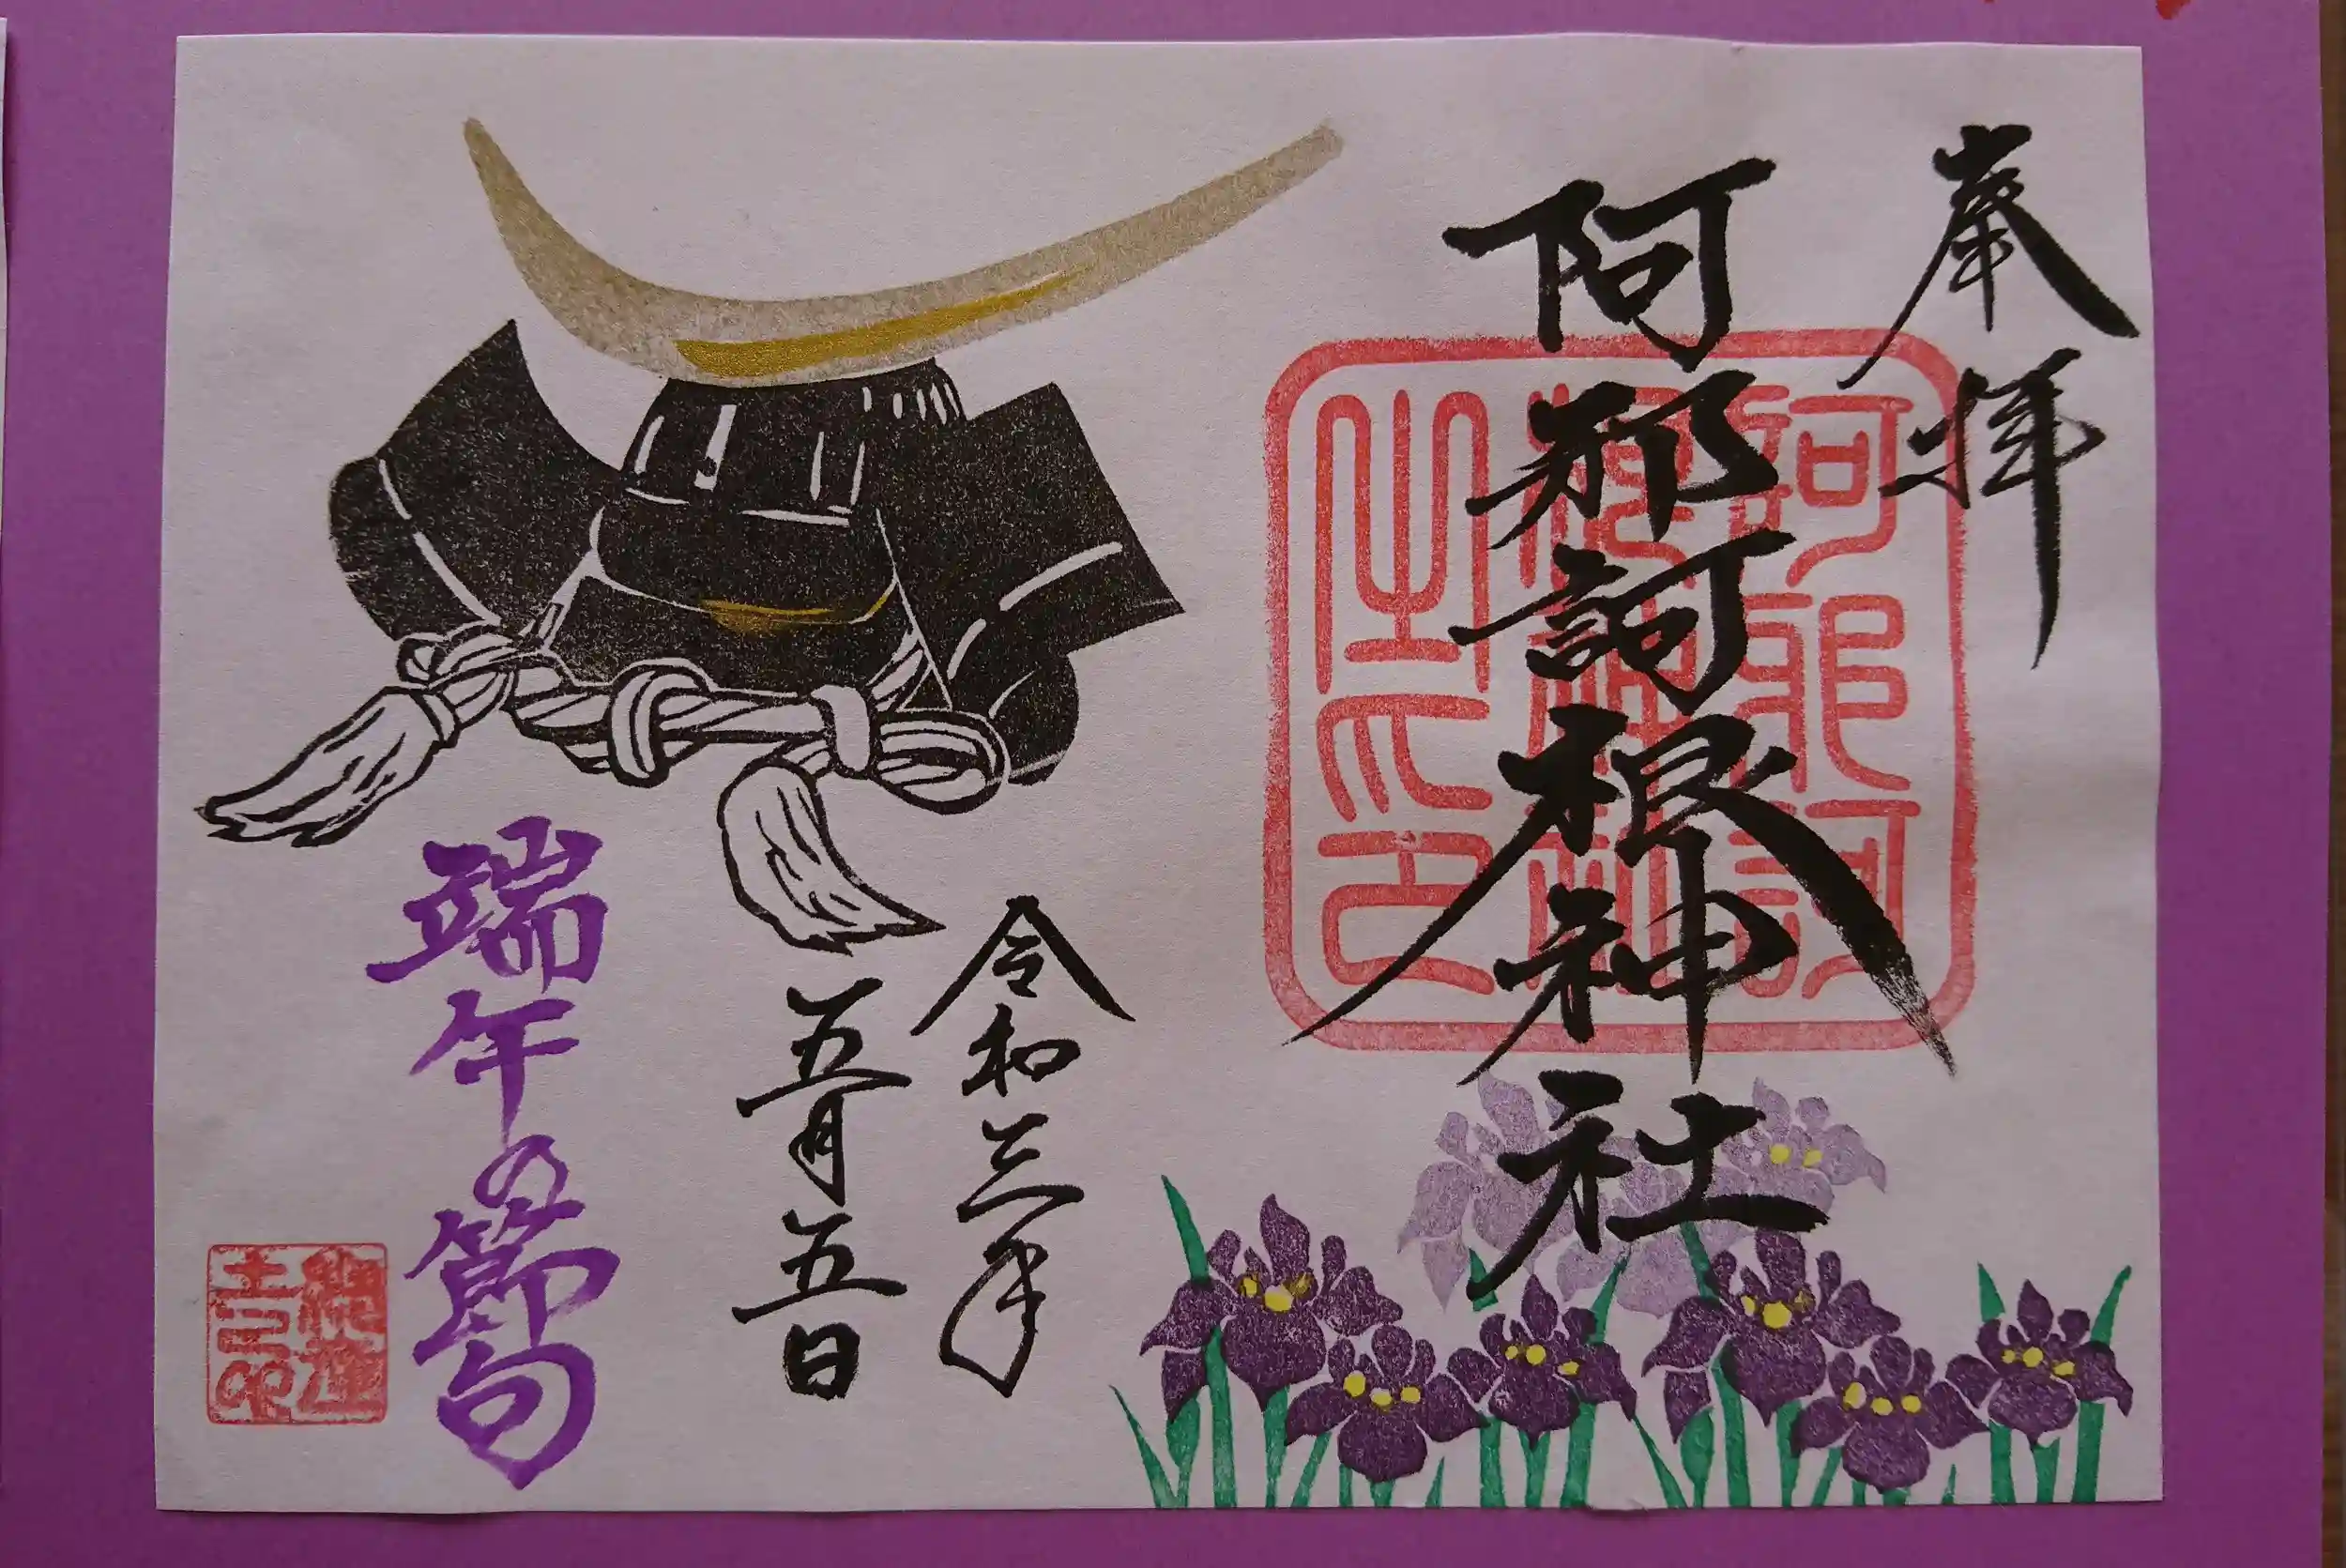 奉拝
阿邪訶根神社
令和三年
五月五日
端午の節句